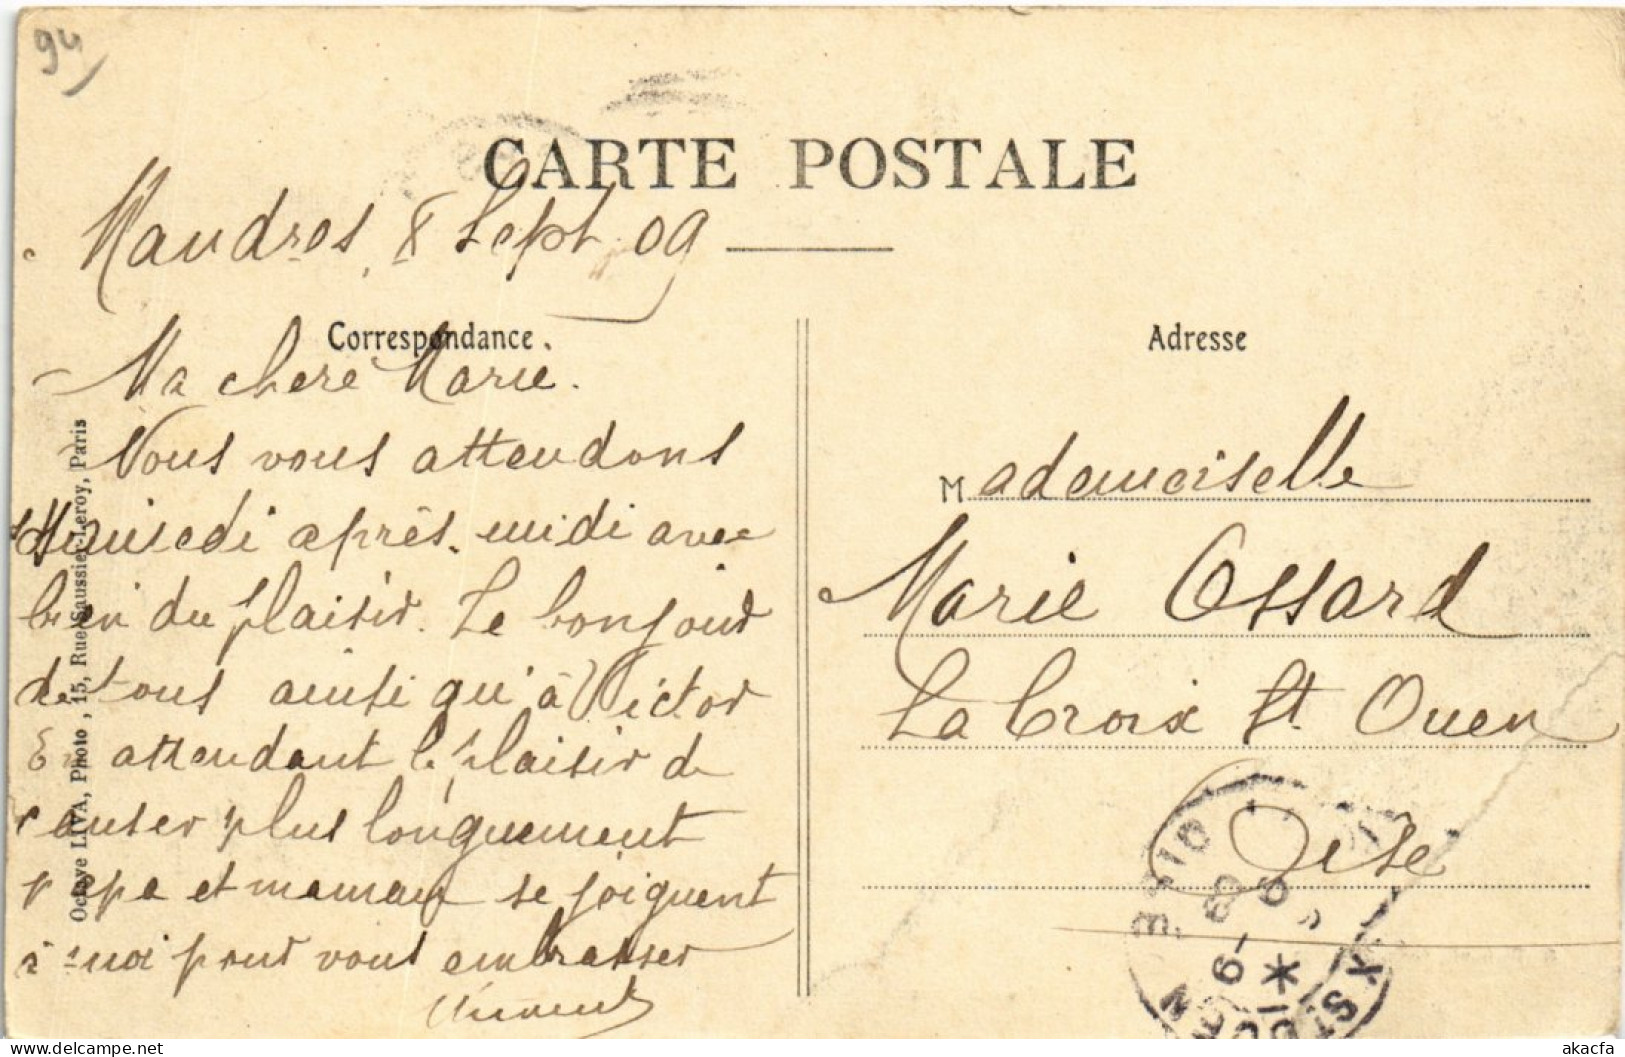 94
CARTE POSTALE
Mandres, 8 Sept. 09
Correspondance.
Ma chere Marie.
Nous vous attendons
Samedi après-midi avec
bien du plaisir. Le bonjour
de tous ainsi qu'à Victor
En attendant le plaisir de
causer plus longuement
papa et maman se joignent
à moi pour vous embrasser
Octave LIVA, Photo, 15, Rue Saussier-Leroy, Paris
Adresse
Mademoiselle
Marie Ossard
La Croix St Ouen
Oise
akacfa